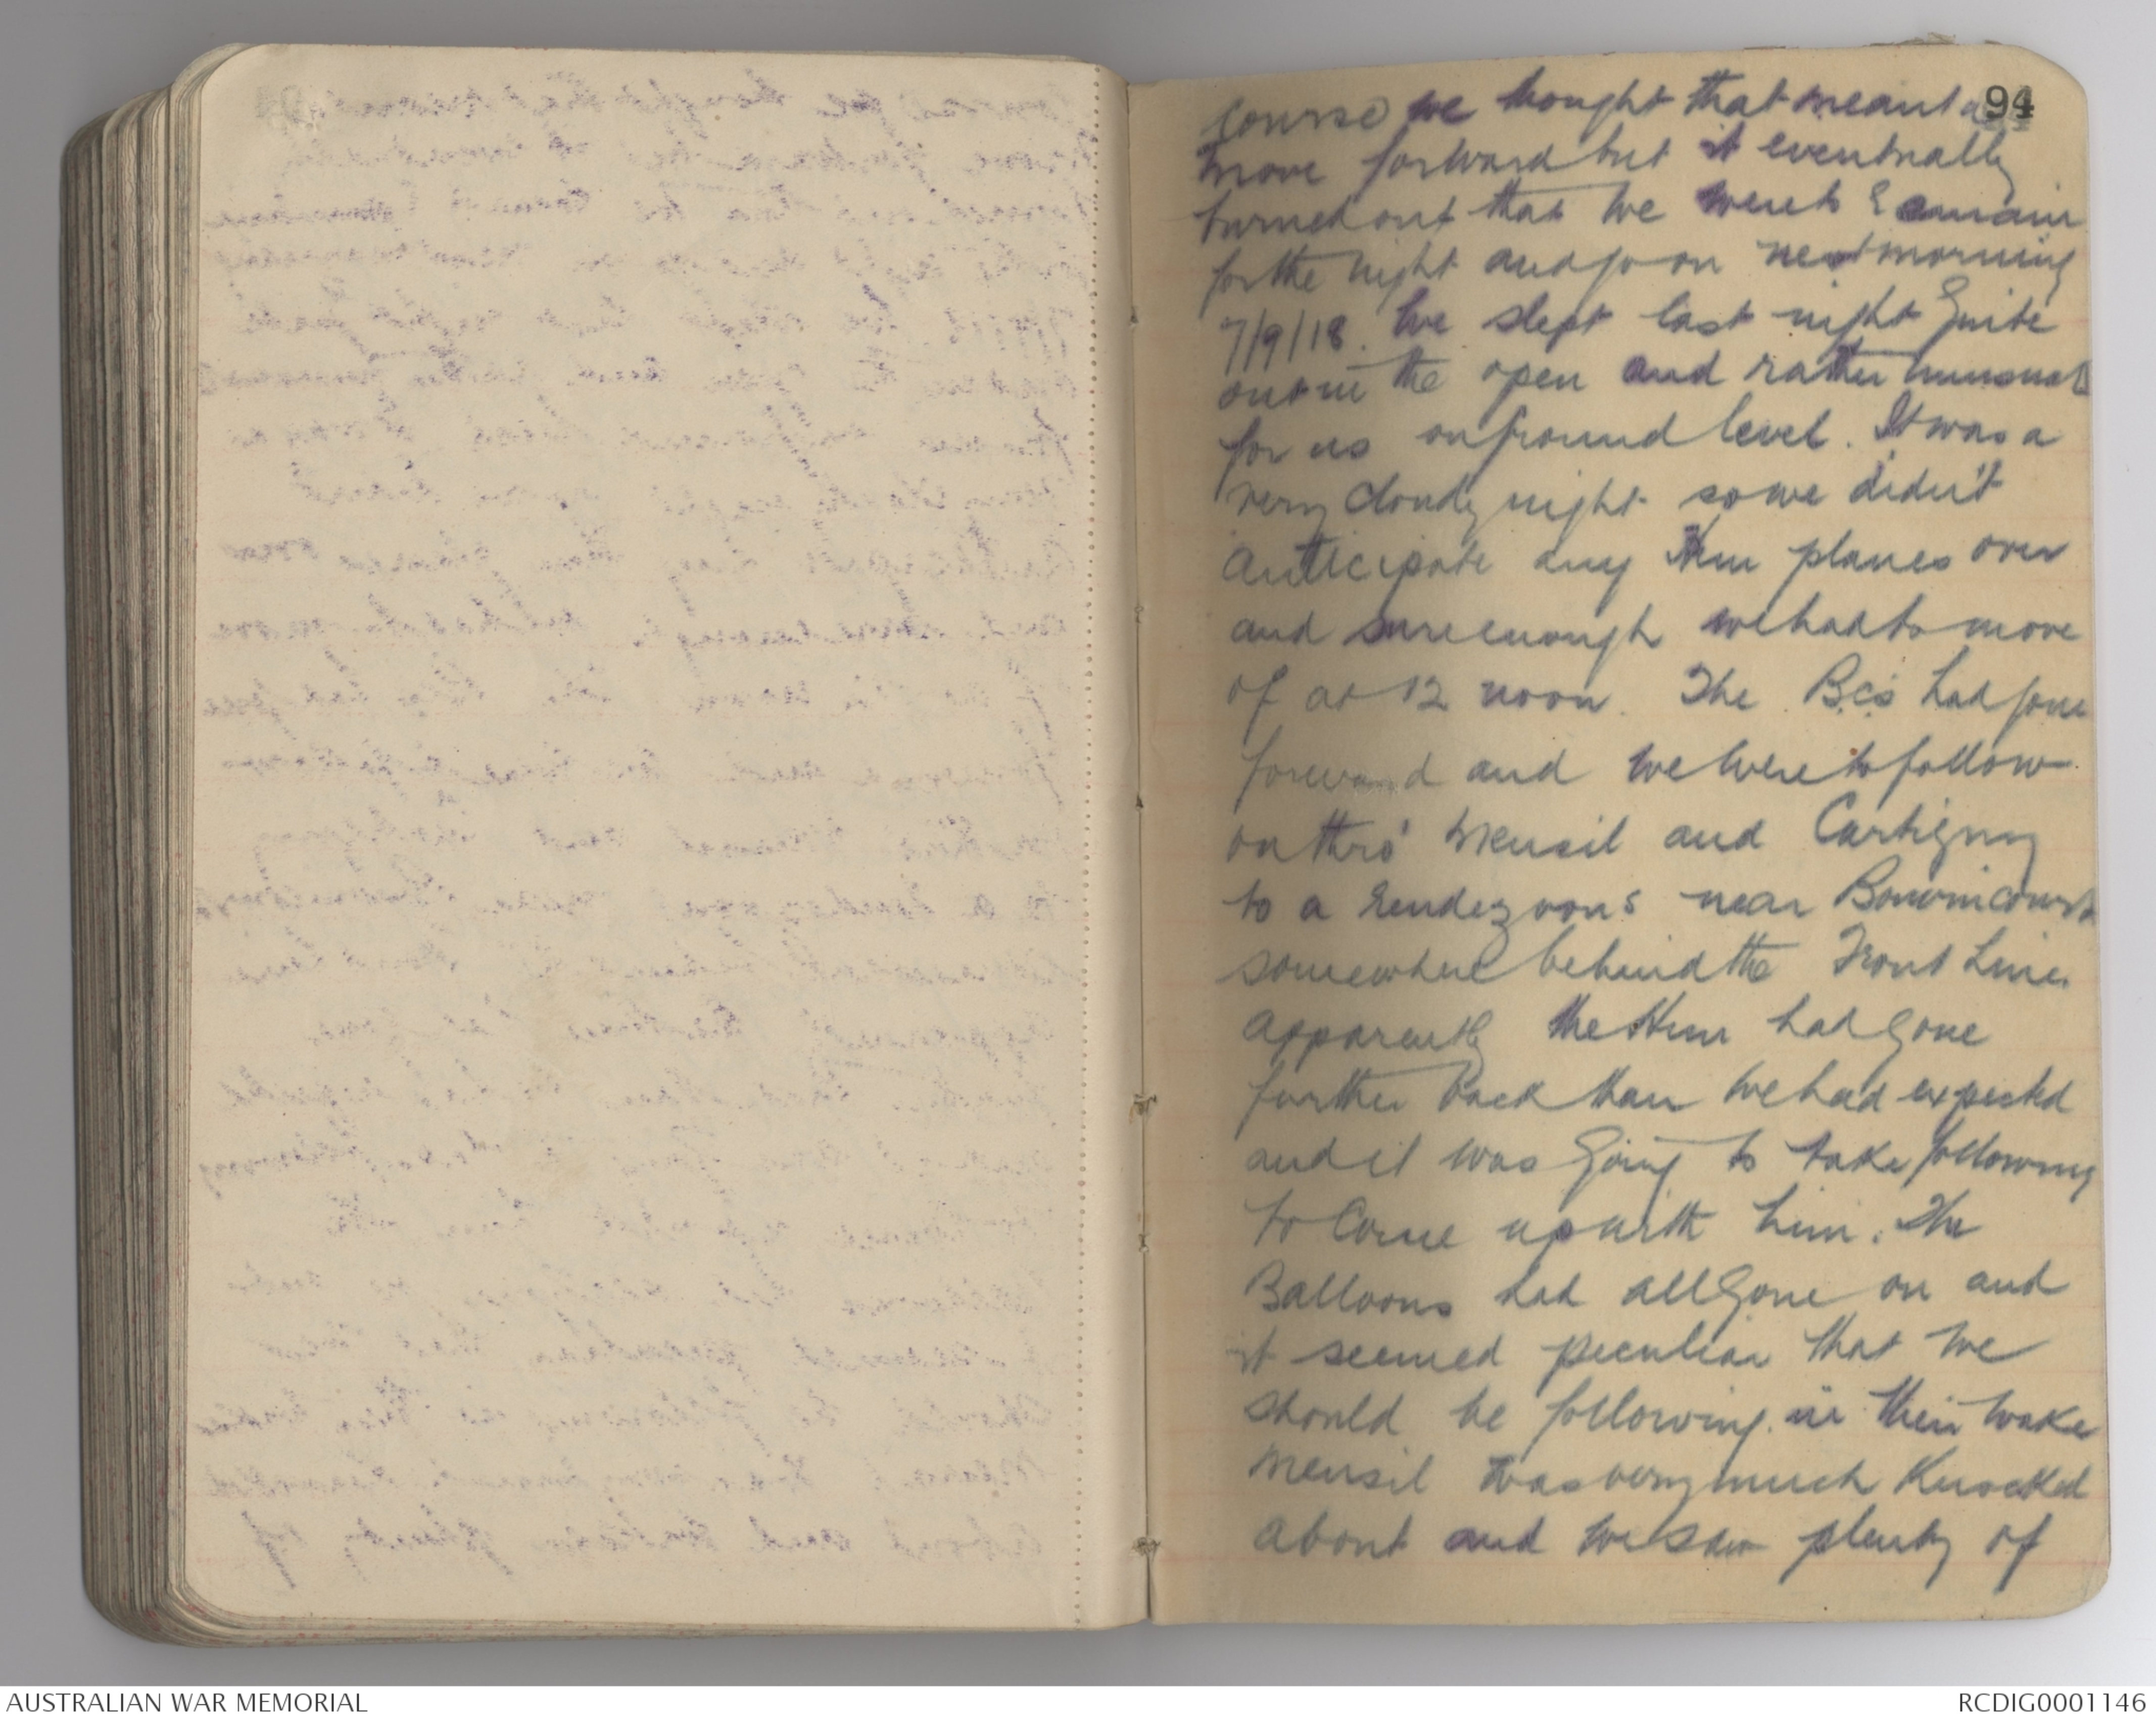 94
course we thought that meant a
move forward but it eventually
turned out that we were to remain
for the night and go on next morning
7/9/18. We slept last night quite
out in the open and rather unusual
for us on ground level. It was a
very cloudy night so we didn't
anticipate any Hun planes over
and sure enough we had to move
of at 12 noon. The B.C's had gone
forward and we were to follow
on thro' Mensil and Cartigny
to a rendezvous near Bouvincourt
somewhere behind the Front Line.
Apparently the Hun had gone
further back than we had expected
and it was going to take following
to come up with him. The
Balloons had all gone on and
it seemed peculiar that we
should be following in their wake
Mensil was very much knocked
about and we saw plenty of
AUSTRALIAN WAR MEMORIAL
RCDIG0001146